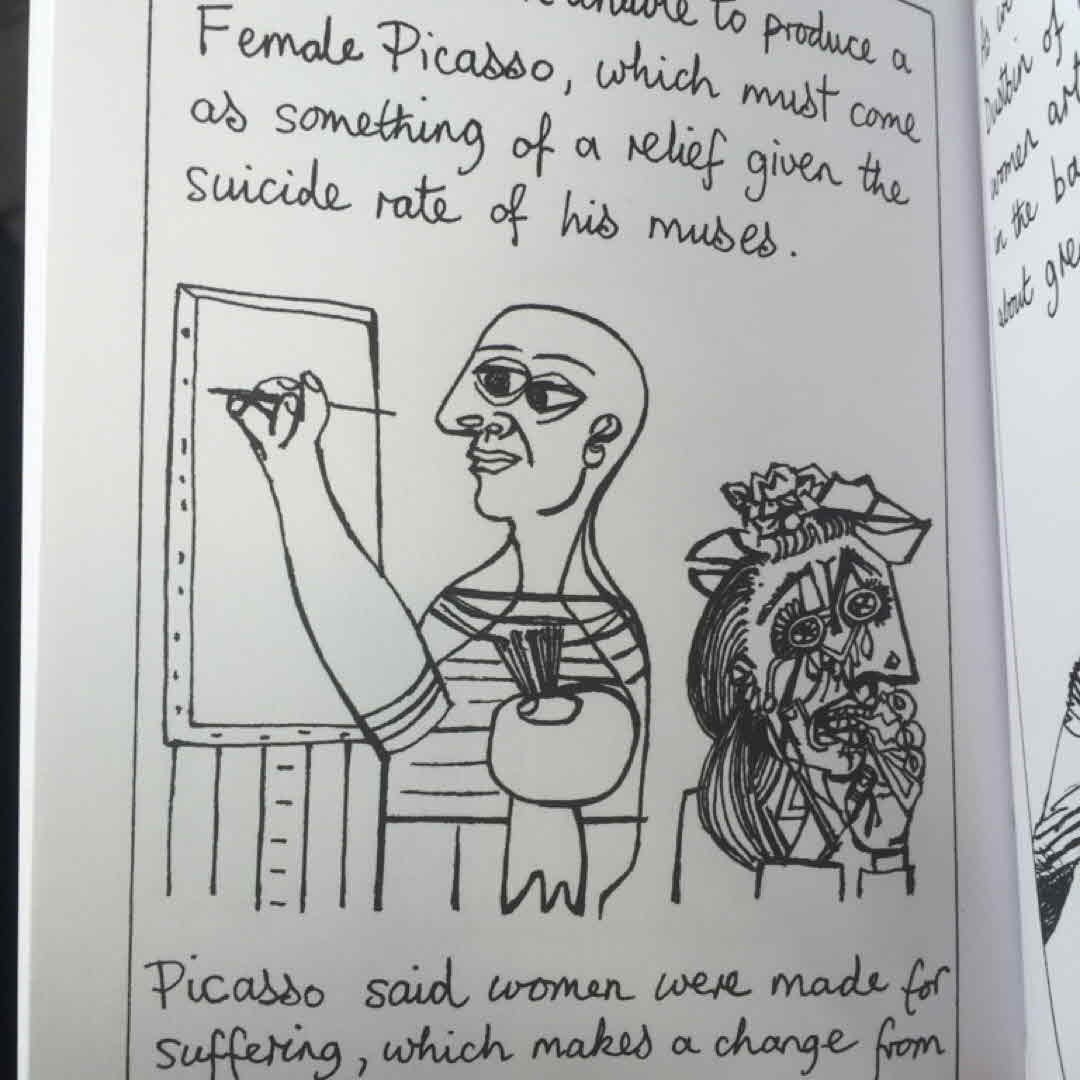 unable to produce a
Female Picasso, which must come
as something of a relief given the
suicide rate of his muses.
Picasso said women were made for
suffering, which makes a change from
As
Dustbin of
women
in the
about